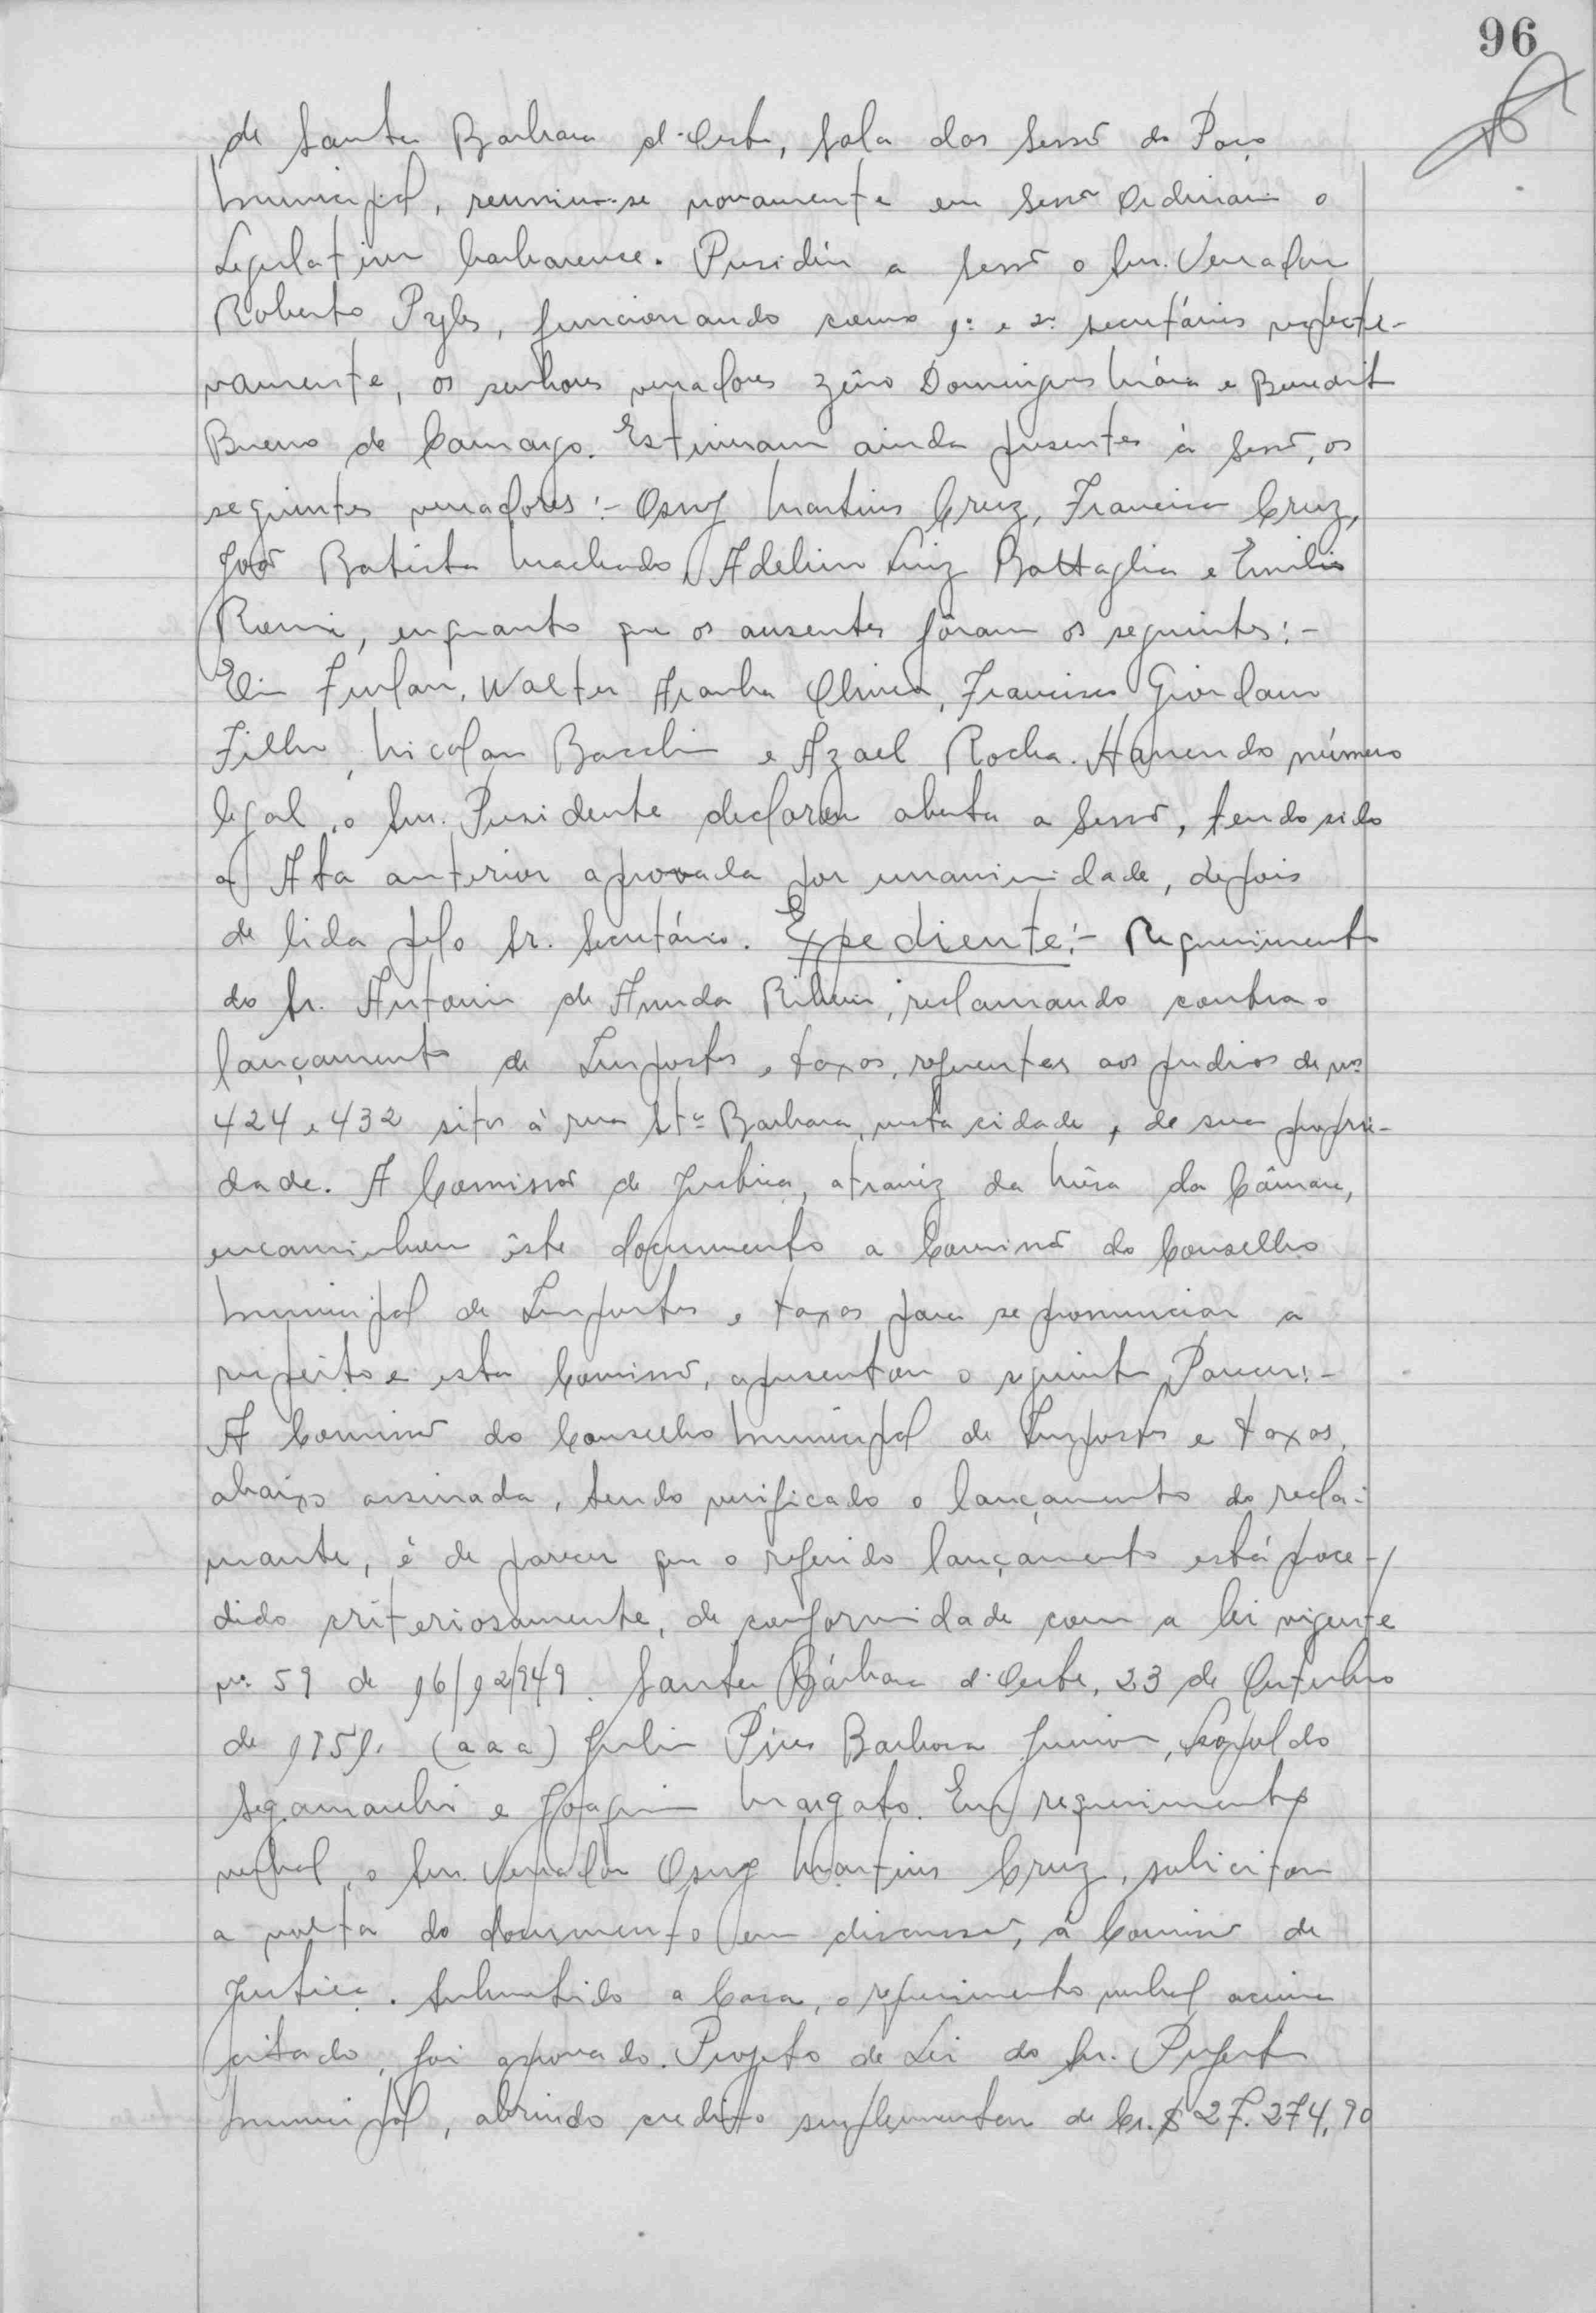 96
de Santa Barbara d'Oeste, Sala das Sessões do Paço
Municipal, reuniu-se novamente em Sessão Ordinária o
Legislativo barbarense. Presidiu a Sessão o Snr. Vereador
Roberto Pyles, funcionando como 1º e 2º secretários respecti-
vamente, os senhores vereadores Zêno Domingues Máia e Benedito
Bueno de Camargo. Estiveram ainda presentes à Sessão, os
seguintes vereadores:- Osny Martins Cruz, Francisco Cruz,
João Batista Machado, Adelino Luiz Battaglia e Emilio
Romi, enquanto que os ausentes fôram os seguintes:-
Furlan, Walter Aranha Oliveira, Francisco Giordano
Filho, Nicolau Bacchin e Azael Rocha. Havendo número
legal, o Snr. Presidente declarou aberta a Sessão, tendo sido
a Ata anterior aprovada por unanimidade, depois
de lida pelo Sr. Secretário. Expediente:- Requerimento
do Sr. Antonio de Arruda Ribeiro, reclamando contra o
lançamento de Impostos e taxas, referentes aos predios de nºs
424 e 432 sitos à rua Stª Barbara, nesta cidade, de sua proprie-
dade. A Comissão de Justiça, atravéz da Mêsa da Câmara,
encaminhou êste documento a Comissão do Conselho
Municipal de Impostos e taxas para se pronunciar a
respeito e esta Comissão, apresentou o seguinte Parecer:-
A Comissão do Conselho Municipal de Impostos e taxas,
abaixo assinada, tendo verificado o lançamento do recla-
mante, é de parecer que o referido lançamento está proce-
dido criteriosamente, de conformidade com a lei vigente
nº 59 de 16/12/949. Santa Bárbara d'Oeste, 23 de Outubro
de 1951. (a a a) Julio Pires Barbosa Junior, Leopoldo
e Joaquim Margato. Em requerimento
verbal, o Snr. Vereador Osny Martins Cruz, solicitou
a volta do documento em discussão, à Comissão de
Justiça. Submetido a Casa, o requerimento verbal acima
citado, foi aprovado. Projeto de Lei do Sr. Prefeito
Municipal, abrindo credito suplementar de Cr.$ 27.274,90